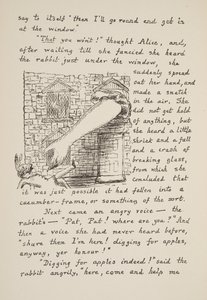 say to itself "then I'll go round and get in
at the window."
"That you won't!" thought Alice, and,
after waiting till she fancied she heard
the rabbit just under the window, she
suddenly spread
out her hand, and
made a snatch
in the air. She
did not get hold
of anything, but
she heard a little
shriek and a fall
and a crash of
breaking glass,
from which she
concluded that
it was just possible it had fallen into a
cucumber-frame, or something of the sort.
Next came an angry voice — the
rabbit's — "Pat, Pat! where are you?" And
then a voice she had never heard before,
"shure then I'm here! digging for apples,
anyway, yer honour!"
"Digging for apples indeed!" said the
rabbit angrily, "here, come and help me